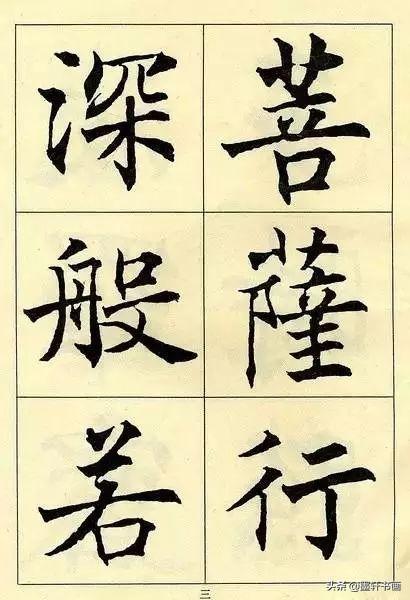 菩薩行
深般若
三
头条@墨轩书画